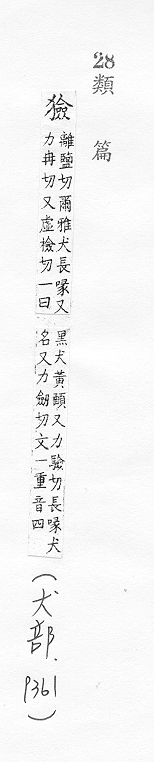 28
類篇
獫
離鹽切爾雅犬長喙又
力冉切又虛檢切一曰
黑犬黃頭又力驗切長喙犬
名又力劒切文一重音四
(犬部. P361)